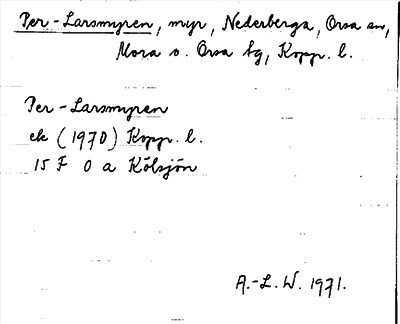 Per-Larsmyren, myr, Nederberga, Orsa sn,
Mora o. Orsa tg, Kopp. l.
Per-Larsmyren
ek (1970) Kopp. l.
15 F 0 a Kölsjön
A.-L. W. 1971.